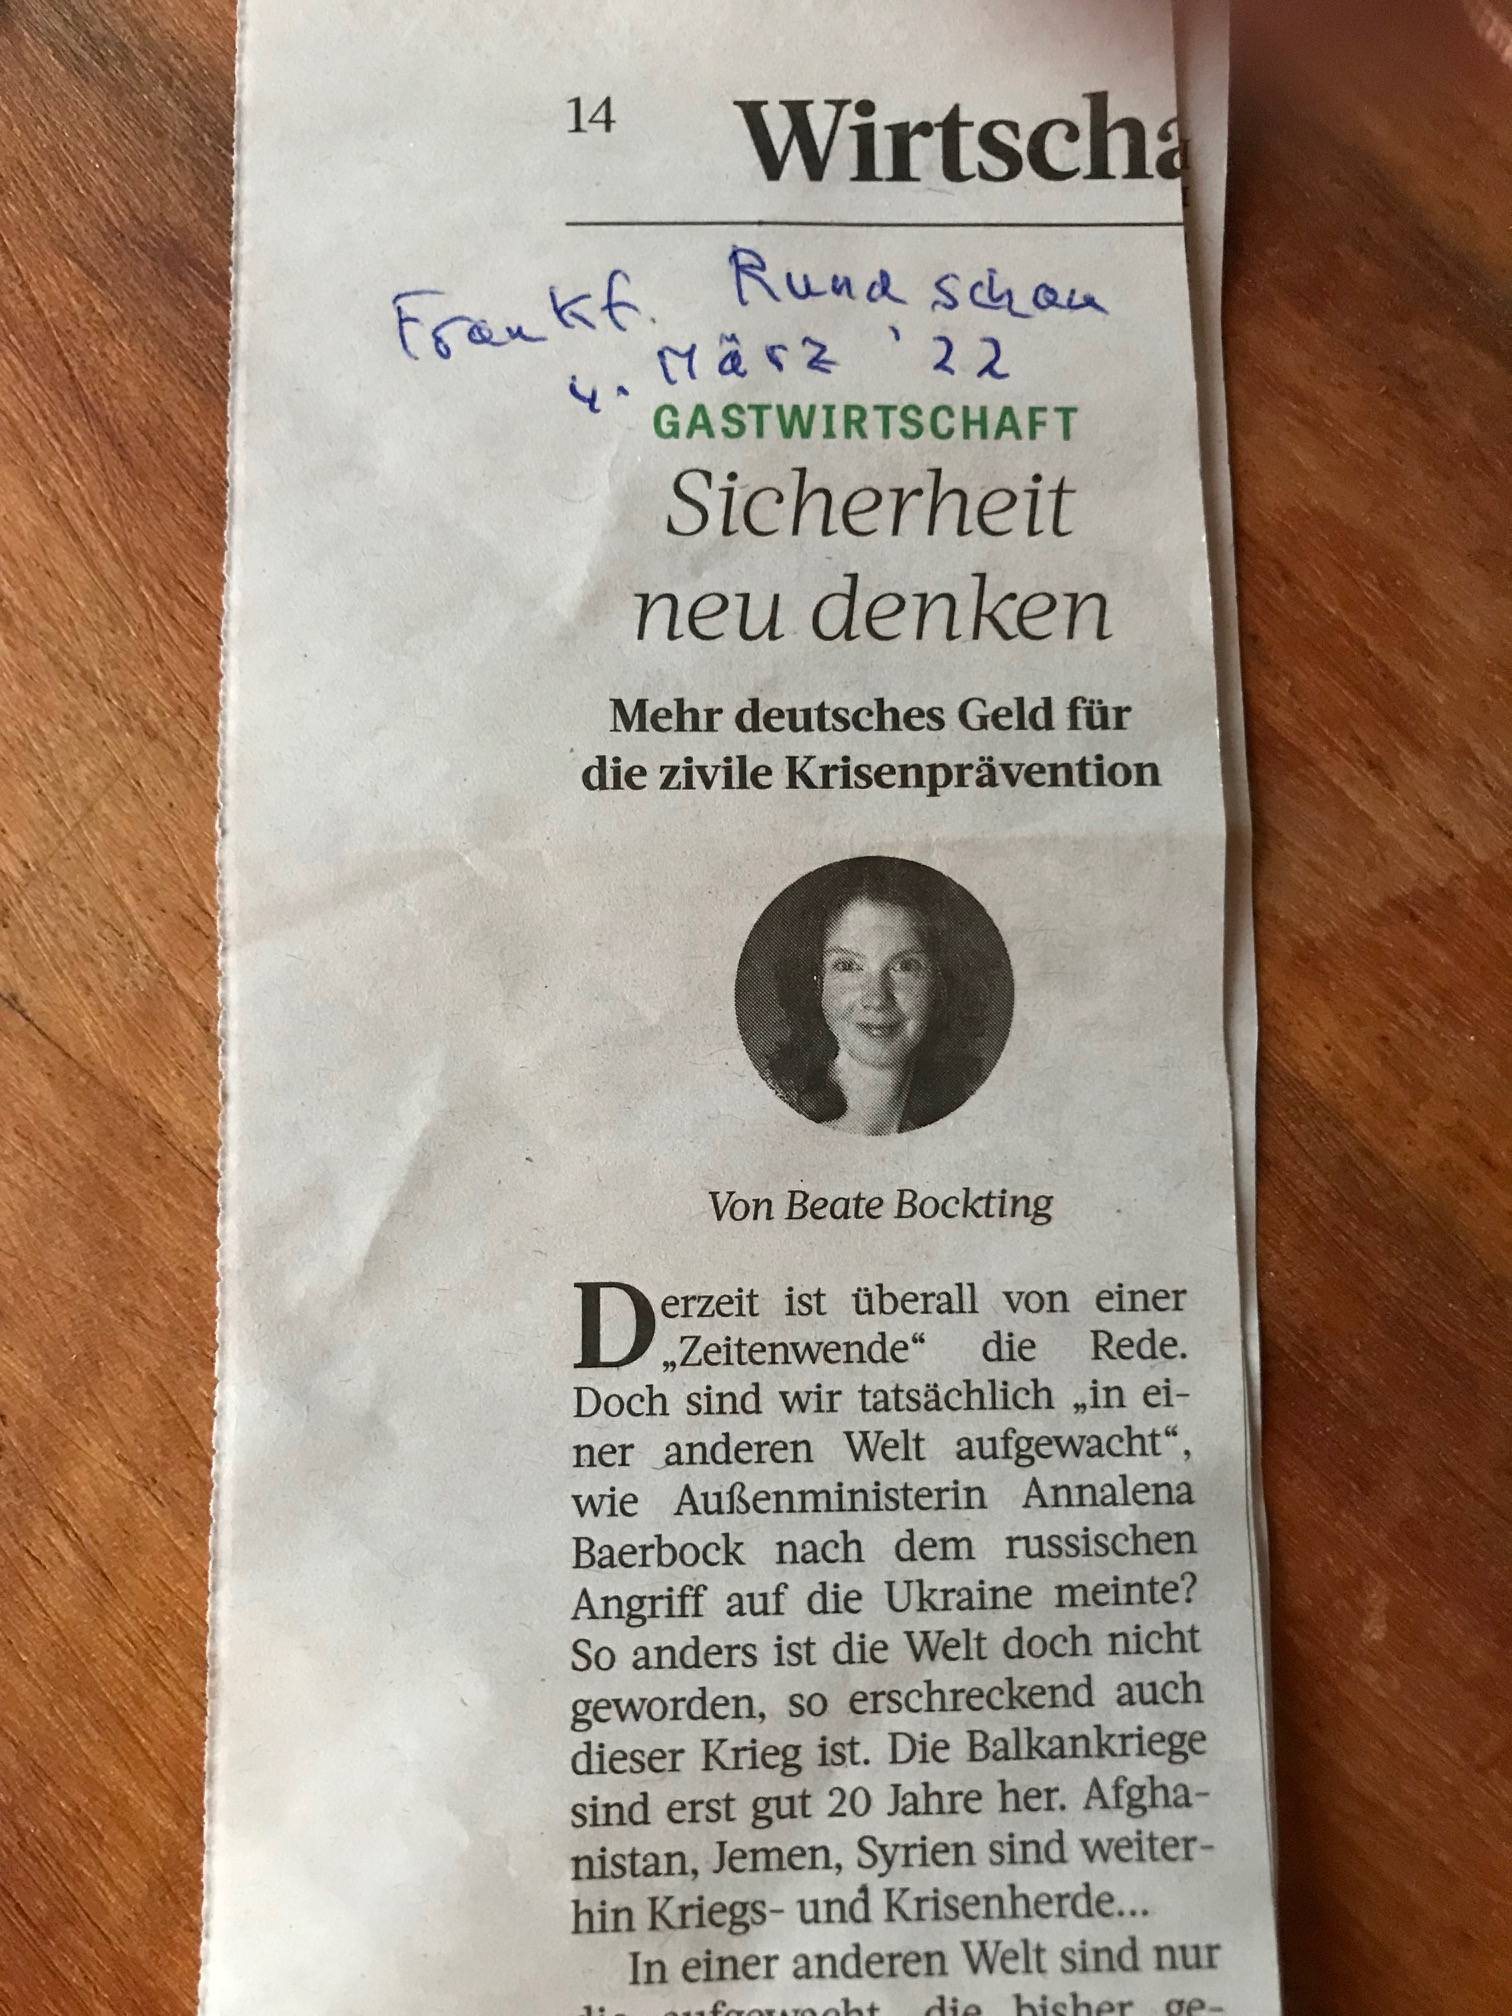 14 Wirtscha
Frankf. Rundschau
4. März '22
GASTWIRTSCHAFT
Sicherheit
neu denken
Mehr deutsches Geld für
die zivile Krisenprävention
Von Beate Bockting
Derzeit ist überall von einer
„Zeitenwende“ die Rede.
Doch sind wir tatsächlich „in ei-
ner anderen Welt aufgewacht“,
wie Außenministerin Annalena
Baerbock nach dem russischen
Angriff auf die Ukraine meinte?
So anders ist die Welt doch nicht
geworden, so erschreckend auch
dieser Krieg ist. Die Balkankriege
sind erst gut 20 Jahre her. Afgha-
nistan, Jemen, Syrien sind weiter-
hin Kriegs- und Krisenherde...
In einer anderen Welt sind nur
die aufgewacht, die bisher ge-